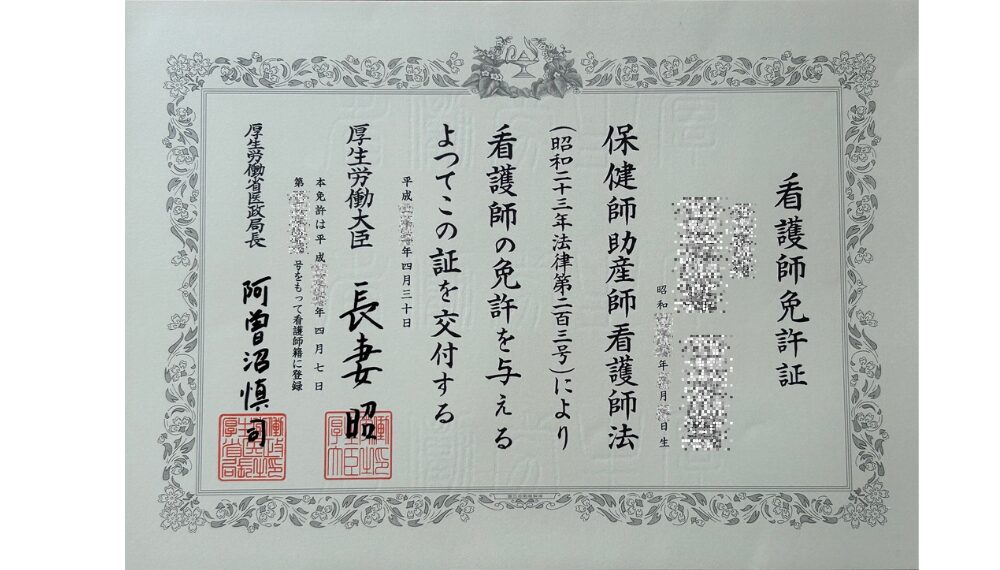 看護師免許証
昭和 年 月 日生
保健師助産師看護師法
(昭和二十三年法律第二百三号)により
看護師の免許を与える
よつてこの証を交付する
平成 年四月三十日
厚生労働大臣 長妻昭
本免許は平成 年四月七日
第 号をもって看護師籍に登録
厚生労働省医政局長 阿曽沼慎司